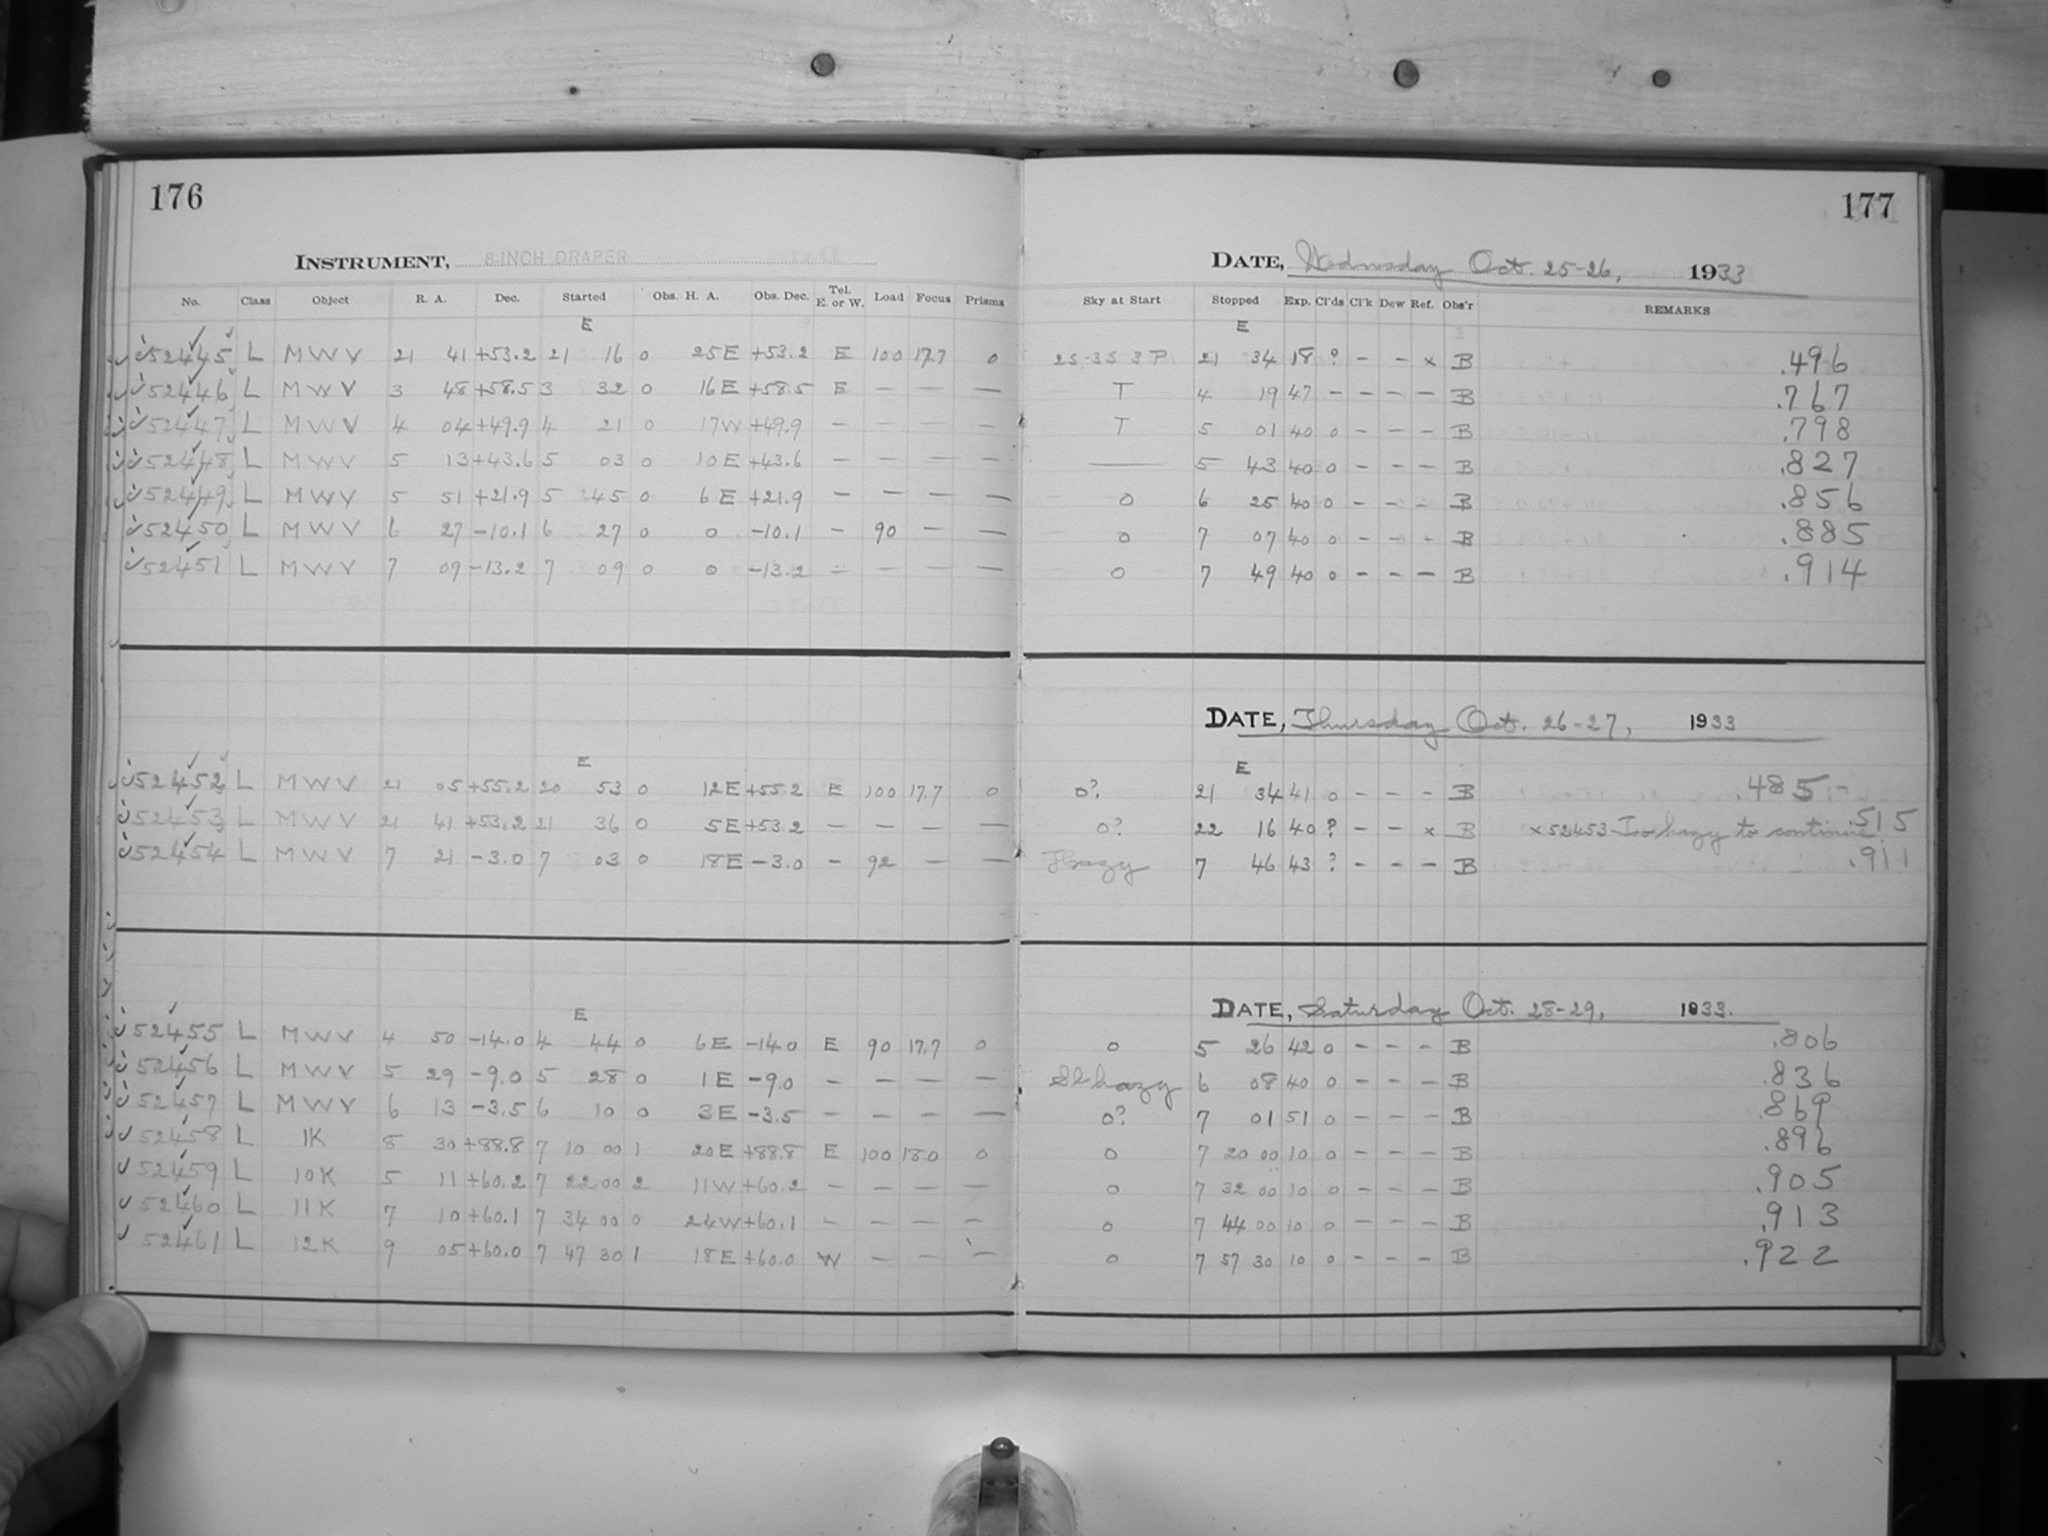 176
INSTRUMENT, 8-INCH DRAPER
No. Class Object R. A. Dec. Started Obs. H. A. Obs. Dec. Tel. E. or W. Load Focus Prisms
E
52445 L MWV 21 41 +53.2 21 16 0 25E +53.2 E 100 17.7 0
52446 L MWV 3 48 +58.5 3 32 0 16E +58.5 E — — —
52447 L MWV 4 04 +49.9 4 21 0 17W +49.9 — — — —
52448 L MWV 5 13 +43.6 5 03 0 10E +43.6 — — — —
52449 L MWV 5 51 +21.9 5 45 0 6E +21.9 — — — —
52450 L MWV 6 27 -10.1 6 27 0 0 -10.1 - 90 — —
52451 L MWV 7 09 -13.2 7 09 0 0 -13.2 — — — —
E
52452 L MWV 21 05 +55.2 20 53 0 12E +55.2 E 100 17.7 0
52453 L MWV 21 41 +53.2 21 36 0 5E +53.2 — — — —
52454 L MWV 7 21 -3.0 7 03 0 18E -3.0 - 92 — —
E
52455 L MWV 4 50 -14.0 4 44 0 6E -14.0 E 90 17.7 0
52456 L MWV 5 29 -9.0 5 28 0 1E -9.0 — — — —
52457 L MWV 6 13 -3.5 6 10 0 3E -3.5 — — — —
52458 L 1K 8 30 +88.8 7 10 00 1 20E +88.8 E 100 18.0 0
52459 L 10K 5 11 +60.2 7 22 00 2 11W +60.2 — — — —
52460 L 11K 7 10 +60.1 7 34 00 0 24W +60.1 — — — —
52461 L 12K 9 05 +60.0 7 47 30 1 18E +60.0 W — — —
177
DATE, Wednesday Oct. 25-26, 1933
Sky at Start Stopped Exp. Cl'ds Cl'k Dew Ref. Obs'r REMARKS
E
25-35 3 P. 21 34 18 ? - - x B .496
T 4 19 47 - - - - B .767
T 5 01 40 0 - - - B .798
— 5 43 40 0 - - - B .827
0 6 25 40 0 - - - B .856
0 7 07 40 0 - - - B .885
0 7 49 40 0 - - - B .914
DATE, Thursday Oct. 26-27, 1933
E
0? 21 34 41 0 - - - B .485-
0? 22 16 40 ? - - x B x52453-Too hazy to continue .515
Hazy 7 46 43 ? - - - B .911
DATE, Saturday Oct. 28-29, 1933.
0 5 26 42 0 - - - B .806
Sl. hazy 6 08 40 0 - - - B .836
0? 7 01 51 0 - - - B .869
0 7 20 00 10 0 - - - B .896
0 7 32 00 10 0 - - - B .905
0 7 44 00 10 0 - - - B .913
0 7 57 30 10 0 - - - B .922